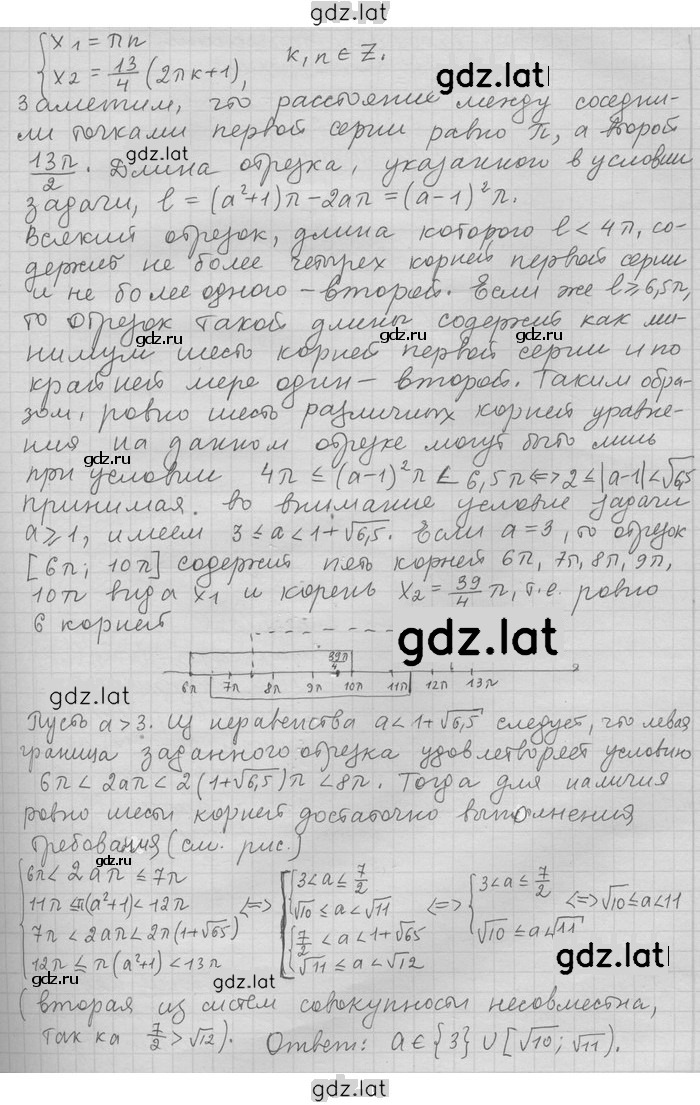 gdz.lat
{ x1 = πn
x2 = 13/4 (2πk+1), k, n ∈ Z.
gdz.lat
Заметим, что расстояние между соседни-
ми точками первой серии равно π, а второй
gdz.lat
13π/2. Длина отрезка, указанного в условии
задачи, l = (a²+1)π − 2aπ = (a−1)²π.
Всякий отрезок, длина которого l < 4π, со-
держит не более четырех корней первой серии
и не более одного – второй. Если же l ⩾ 6,5π,
то отрезок такой длины содержит как ми-
gdz.ru gdz.ru
нимум шесть корней первой серии и по
крайней мере один – второй. Таким обра-
зом, ровно шесть различных корней уравне-
ния на данном отрезке могут быть лишь
gdz.ru
при условии 4π ≤ (a−1)²π < 6,5π <=> 2 ≤ |a−1| < √6,5
принимая во внимание условие задачи
a ⩾ 1, имеем 3 ≤ a < 1+√6,5. Если a = 3, то отрезок
[6π; 10π] содержит пять корней 6π, 7π, 8π, 9π,
10π вида x1 и корень x2 = 39/4 π, т.е. ровно
6 корней
gdz.lat
39π/4
6π 7π 8π 9π 10π 11π 12π 13π
gdz.lat
Пусть a > 3. Из неравенства a < 1+√6,5 следует, что левая
граница заданного отрезка удовлетворяет условию
6π < 2aπ < 2(1+√6,5)π < 8π. Тогда для наличия
ровно шести корней достаточно выполнения
требования (см. рис.)
gdz.ru gdz.ru
6π < 2aπ ≤ 7π 3 < a ≤ 7/2 3 < a ≤ 7/2
11π ≤ π(a²+1) < 12π <=> √10 ≤ a < √11 <=> √10 ≤ a < √11 <=> √10 ≤ a < 11
7π < 2aπ < 2π(1+√65) 7/2 < a < 1+√65
12π ≤ π(a²+1) < 13π √11 ≤ a < √12
gdz.lat
(вторая из систем совокупности несовместна,
так ка 7/2 > √12). Ответ: a ∈ {3} ∪ [√10; √11).
gdz.lat
gdz.lat